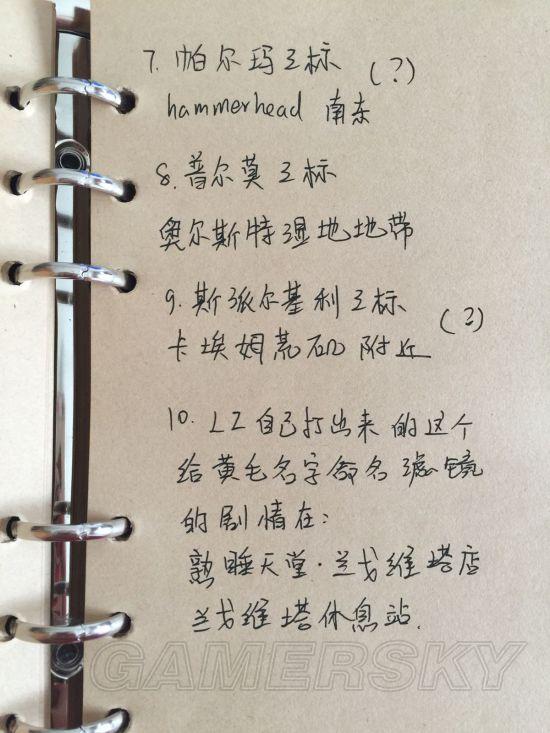 7. 帕尔玛工标 (?)
hammerhead 南东
8. 普尔莫工标
奥尔斯特湿地地带
9. 斯派尔基利工标 (?)
卡埃姆荒矶附近
10. LZ自己打出来的这个
给黄毛名字命名滤镜
的剧情在:
熟睡天堂·兰戈维塔店
兰戈维塔休息站.
GAMERSKY